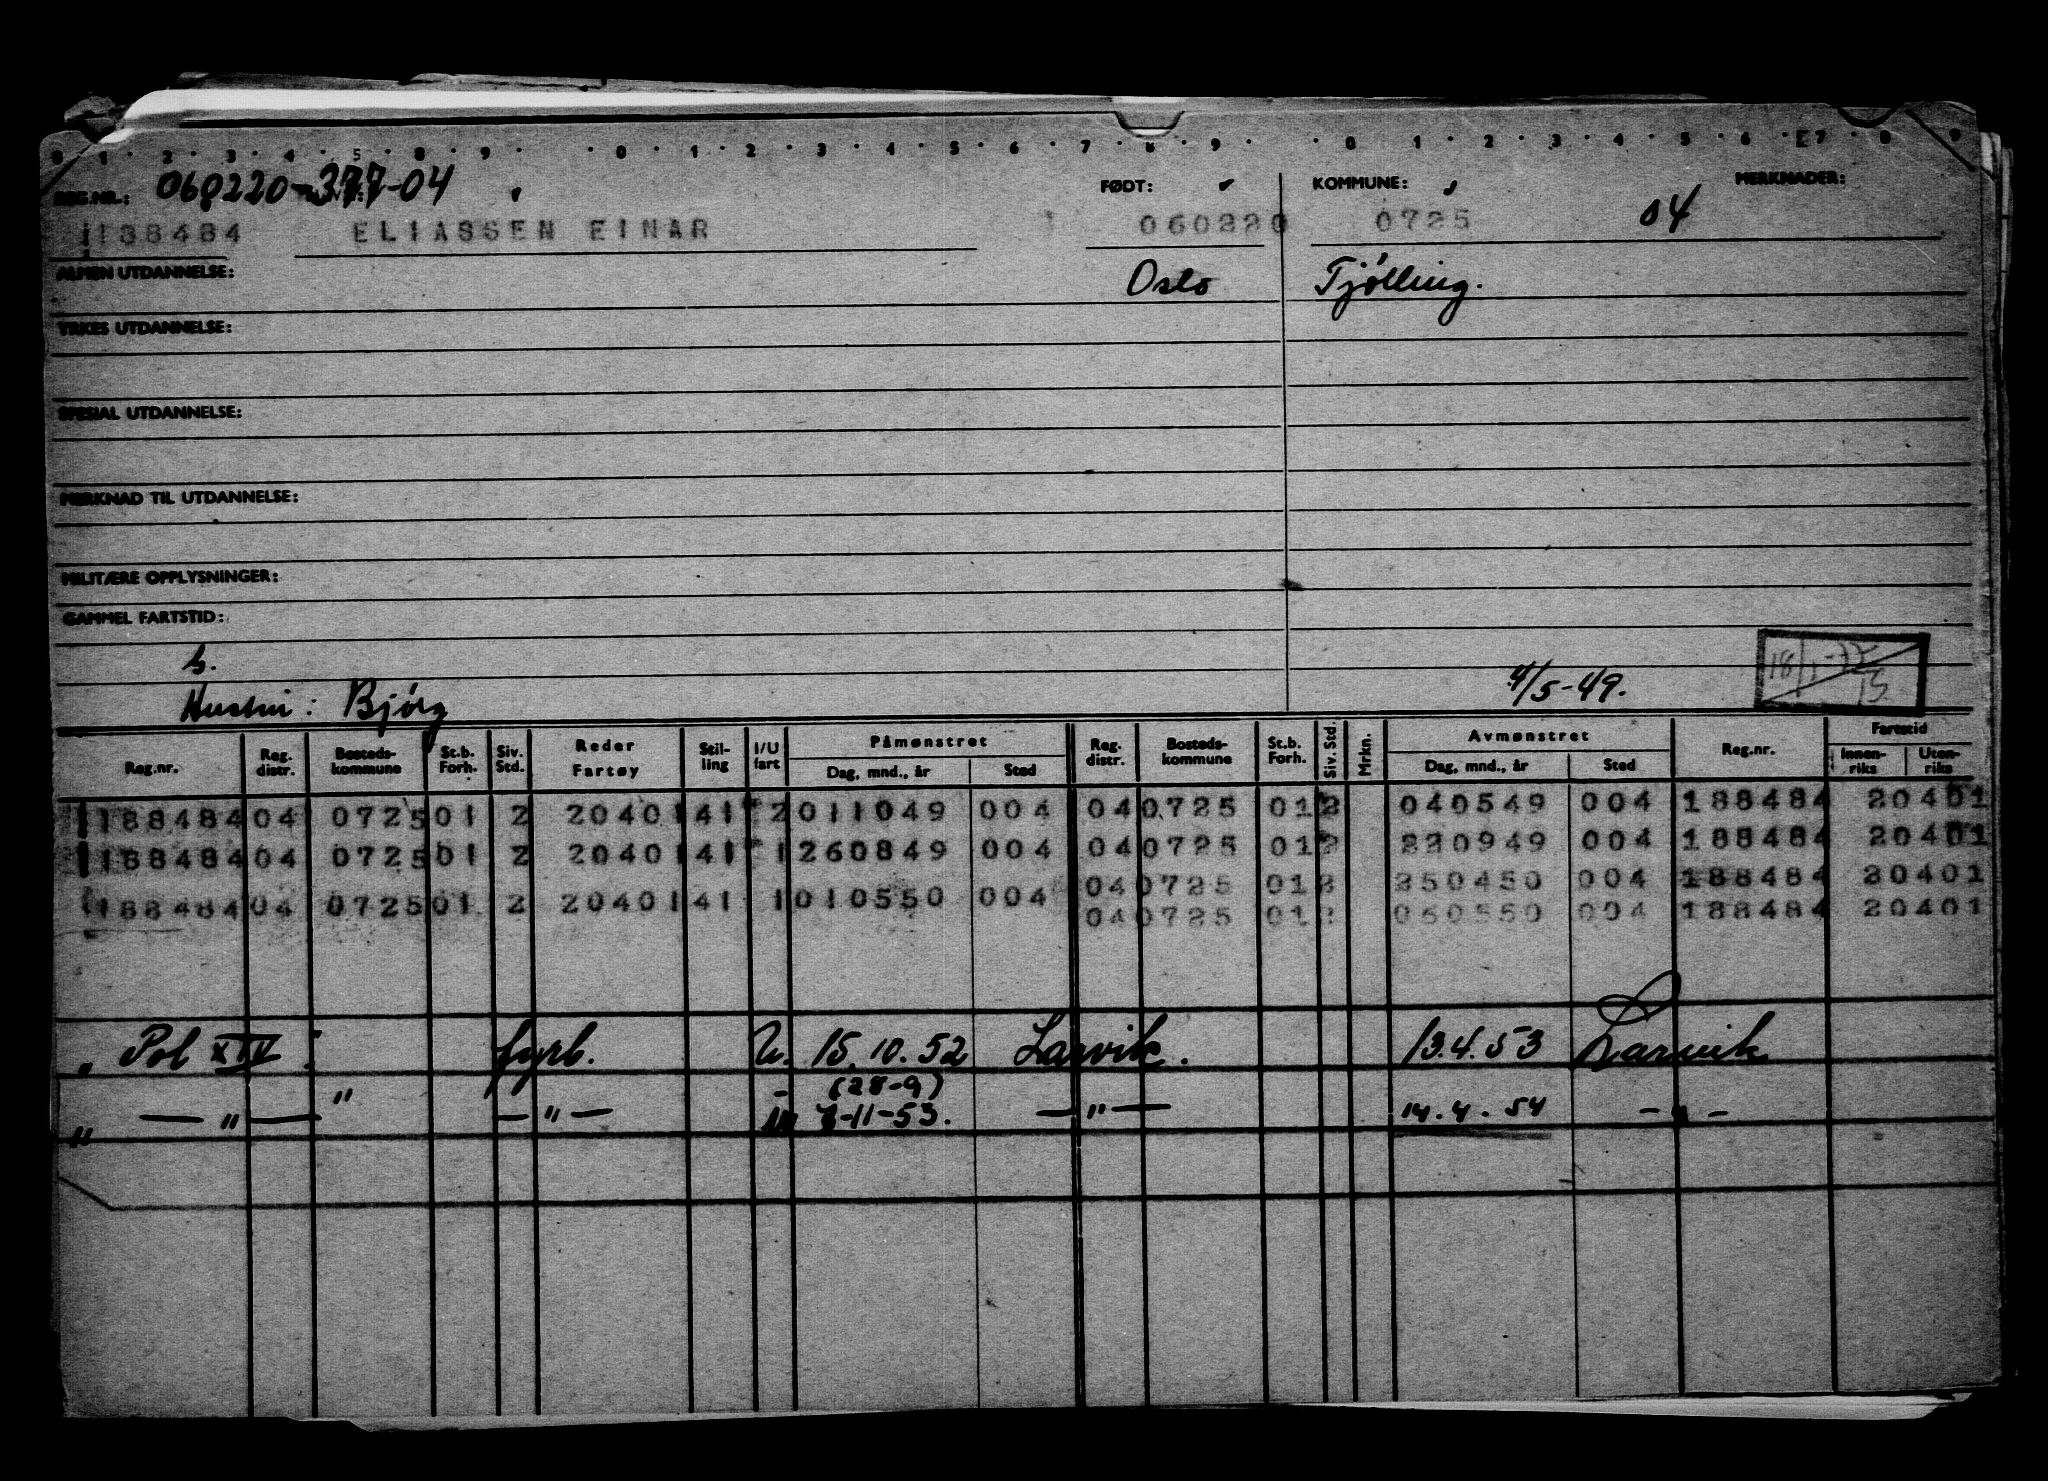 0 1 2 3 4 5 8 9 0 1 2 3 4 5 6 7 8 9 0 1 2 3 4 5 6 E7 8 9
REG.NR.: 060220-377-04 FØDT: KOMMUNE: MERKNADER:
188484 ELIASSEN EINAR 060220 0725 04
ALMEN UTDANNELSE: Oslo Tjølling.
YRKES UTDANNELSE:
SPESIAL UTDANNELSE:
MERKNAD TIL UTDANNELSE:
MILITÆRE OPPLYSNINGER:
GAMMEL FARTSTID:
Hustru: Bjørg 4/5-49.
Reg.nr. Reg. distr. Bosteds-kommune St.b. Forh. Siv. Std. Reder Fartøy Stil-ling I/U fart Påmønstret Dag, mnd., år Sted Reg. distr. Bosteds-kommune St.b. Forh. Siv. Std. Mrkn. Avmønstret Dag, mnd., år Sted Reg.nr. Fartstid Innen-riks Uten-riks
188484 04 0725 01 2 20401 41 2 011049 004 04 0725 01 2 040549 004 188484 20401
188484 04 0725 01 2 20401 41 1 260849 004 04 0725 01 2 220949 004 188484 20401
04 0725 01 2 250450 004 188484 20401
188484 04 0725 01 2 20401 41 1 010550 004 04 0725 01 2 050550 004 188484 20401
" Pol XIV fyrb. U. 15.10.52 Larvik. 13.4.53 Larvik
- (28-9)
" — " — " — " — 7-11-53. — " — 14.4.54 - " -